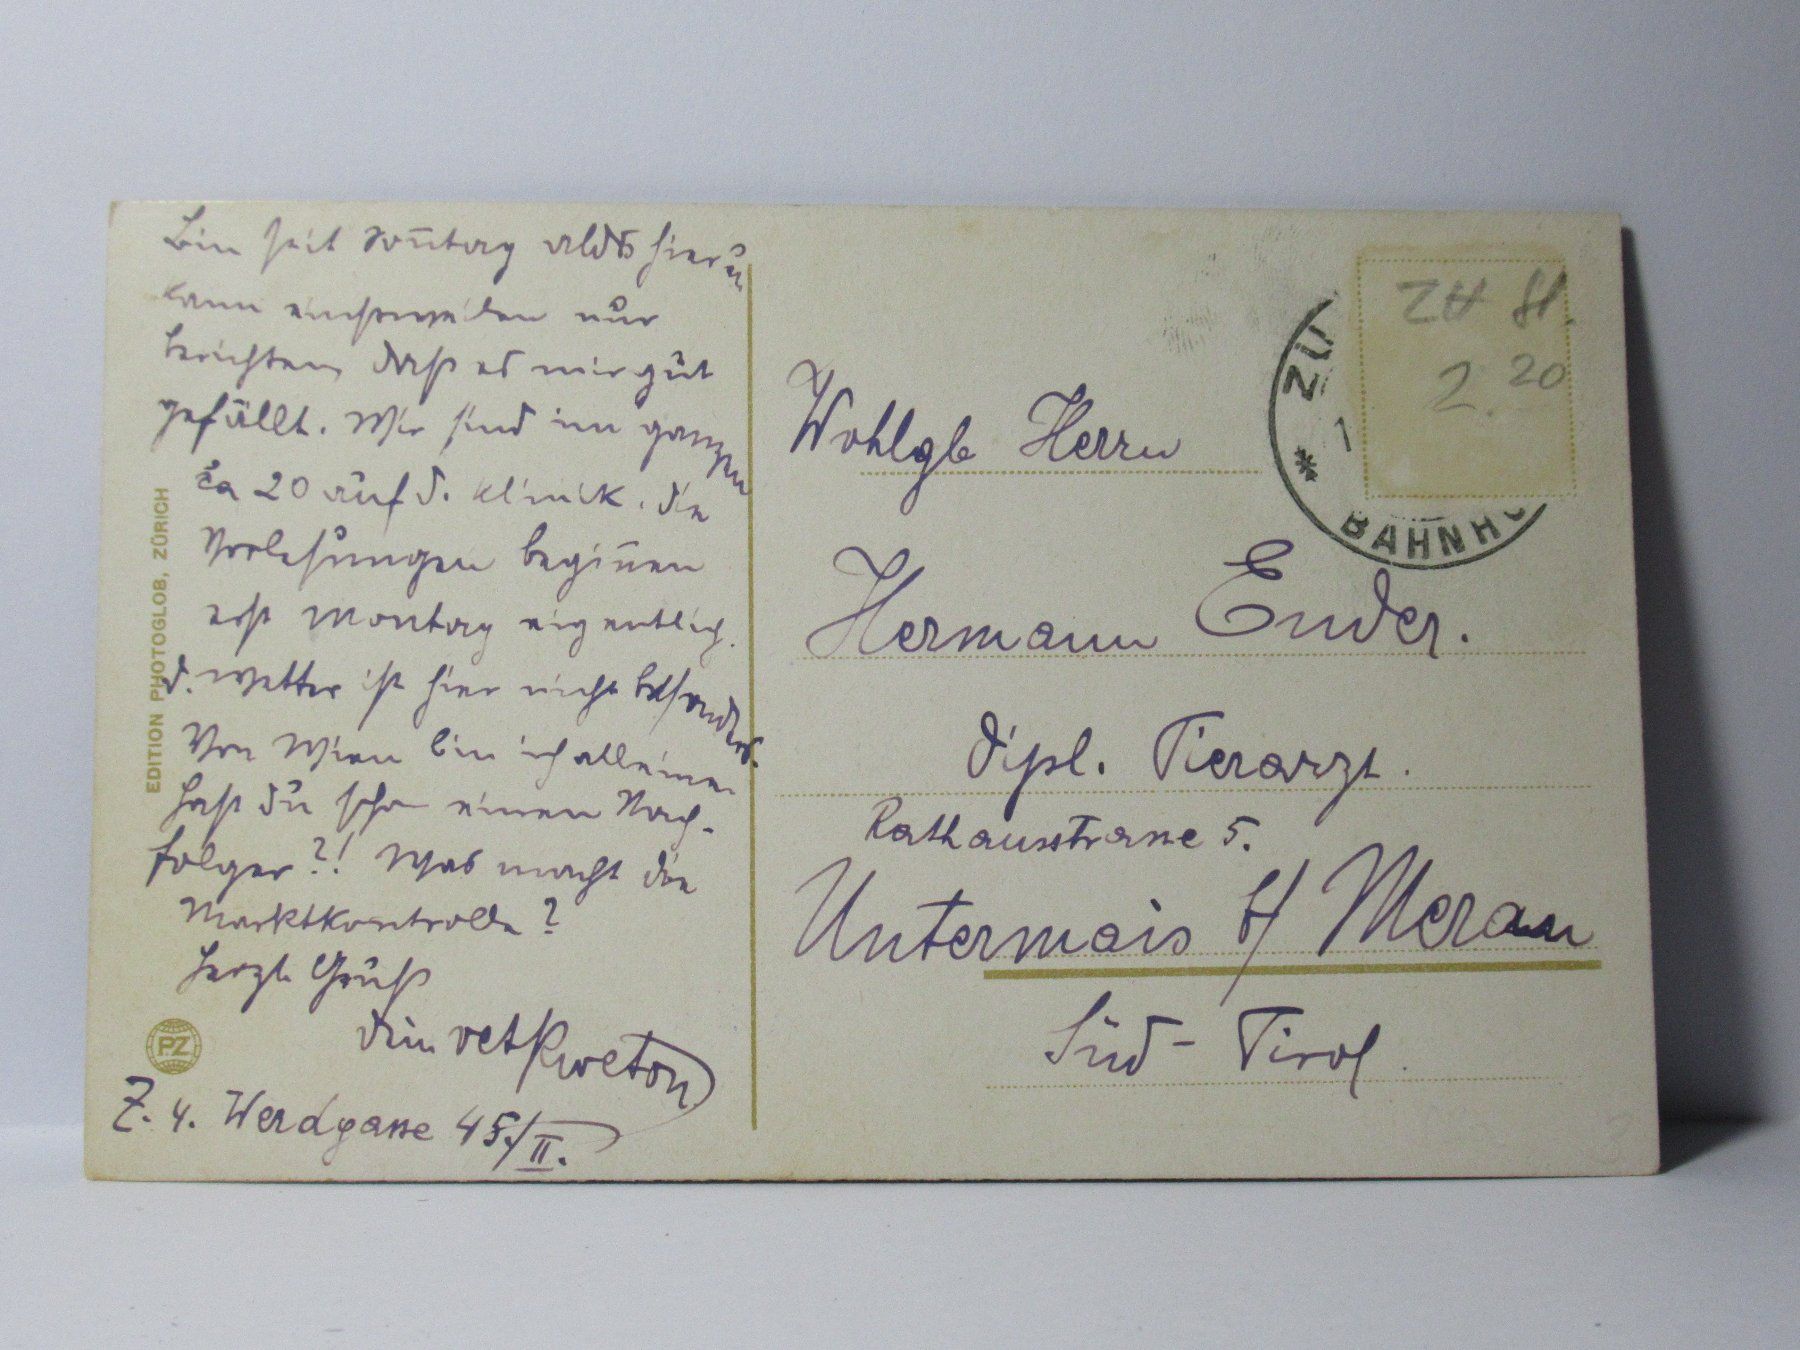 Bin seit Sonntag abds hier u.
kann einstweilen nur
berichten daß es mir gut
gefällt. Wir sind im ganzen
ca 20 auf d. Klinik. Die
Vorlesungen beginnen
erst Montag eigentlich.
D. Wetter ist hier nicht besonders.
Von Wien bin ich alleine.
Hast Du schon einen Nach-
folger?! Was macht die
Marktkontrolle?
Herzl. Gruß
Dein vet
Z. 4. Werdgasse 45./II.
EDITION PHOTOGLOB, ZÜRICH
PZ
ZÜ
* 1
BAHNHO
ZH H.
2.20
Wohlgb Herrn
Hermann Ender.
dipl. Tierarzt.
Rathausstrasse 5.
Untermais b/ Meran
Süd-Tirol.